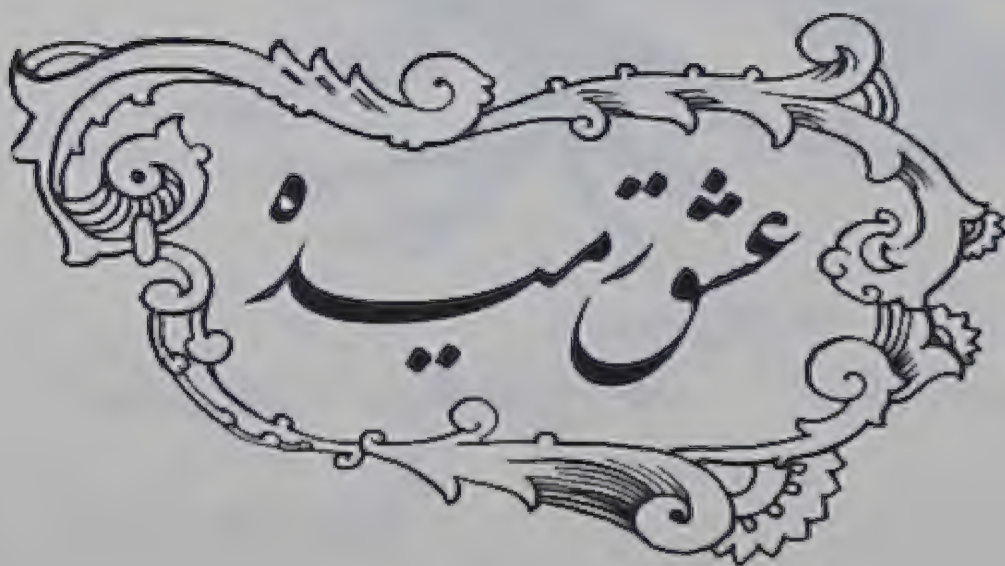 عشق رمیده